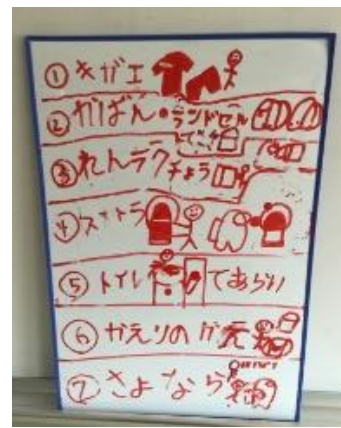 ① キガエ
② かばん・ランドセル
③ れんラクチょう
④
⑤ トイレ てあらい
⑥ かえりの
⑦ さよなら